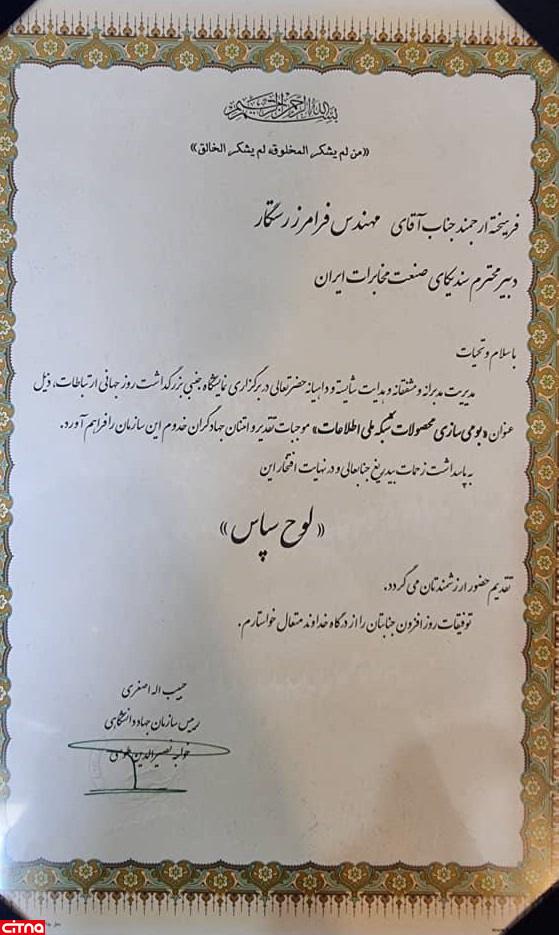 بسم الله الرحمن الرحیم
«من لم یشکر المخلوقه لم یشکر الخالق»
فریخته ارجمند جناب آقای مهندس فرامرز رستگار
دبیر محترم سندیکای صنعت مخابرات ایران
با سلام و تحیات
مدیریت مدبرانه و مشفقانه و هدایت شایسته و داهیانه حضرتعالی در برگزاری نمایشگاه جنبی بزرگداشت روز جهانی ارتباطات، ذیل
عنوان «بومی سازی محصولات شبکه ملی اطلاعات» موجبات تقدیر و امتنان جهادگران خدوم این سازمان را فراهم آورد.
به پاسداشت زحمات بیدریغ جنابعالی و در نهایت افتخار این
«لوح سپاس»
تقدیم حضور ارزشمندتان می گردد.
توفیقات روز افزون جنابتان را از درگاه خداوند متعال خواستارم.
حبیب اله اصغری
رییس سازمان جهاد دانشگاهی
خواجه نصیرالدین طوسی
CITNA